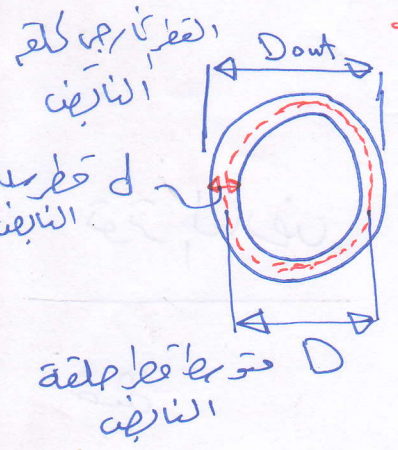 القطر الخارجي لحلقة
النابض
Dout
d قطر سلك
النابض
D متوسط قطر حلقة
النابض